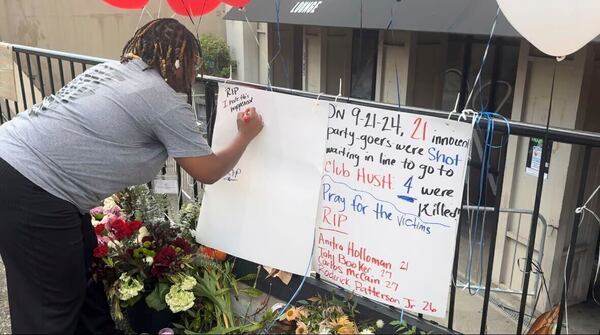 LOUNGE
RIP
I hate this
happened
RIP
ON 9-21-24, 21 innocent
party-goers were Shot
waiting in line to go
Club HUSH. 4 were
Killed!
Pray for the victims
RIP
Anitra Holloman 21
Taj Booker 27
Carlos McCain 27
Roderick Patterson Jr. 26